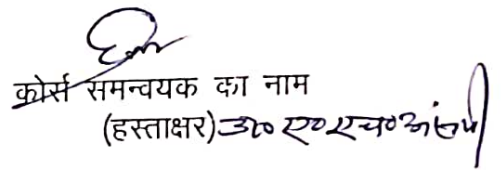 कोर्स समन्वयक का नाम
(हस्ताक्षर) डा० ए० एच० अंसारी